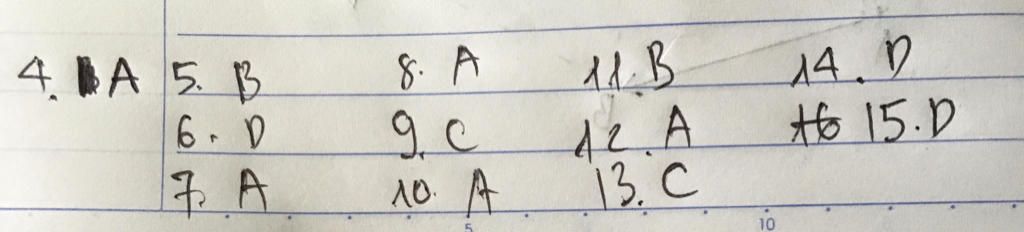 4. A 5. B 8. A 11. B 14. D
6. D 9. C 12. A 16 15. D
7. A 10. A 13. C
5 10